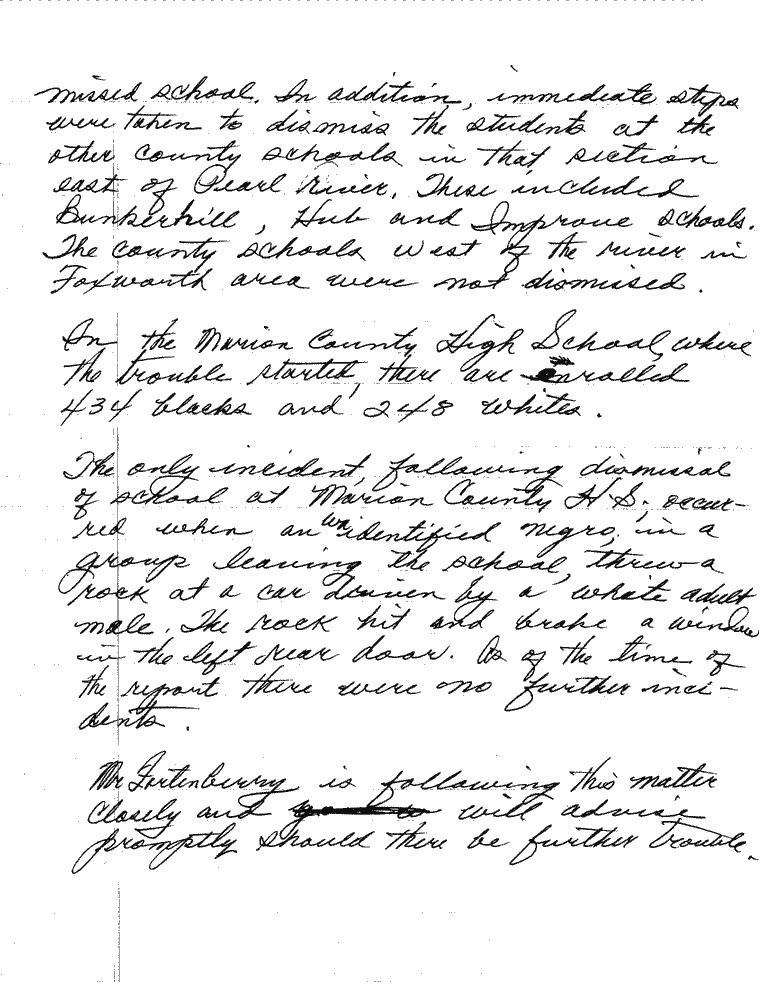 missed school. In addition, immediate steps
were taken to dismiss the students at the
other county schools in that section
east of Pearl River. These included
Bunkerhill, Hub and Improve schools.
The county schools west of the river in
Foxworth area were not dismissed.
In the Marion County High School, where
the trouble started, there are enrolled
434 blacks and 248 whites.
The only incident, following dismissal
of school at Marion County H S, occur-
red when an unidentified negro, in a
group leaving the school, threw a
rock at a car driven by a white adult
male. The rock hit and broke a window
in the left rear door. As of the time of
the report there were no further inci-
dents.
Mr Fortenberry is following this matter
closely and will advise
promptly should there be further trouble.